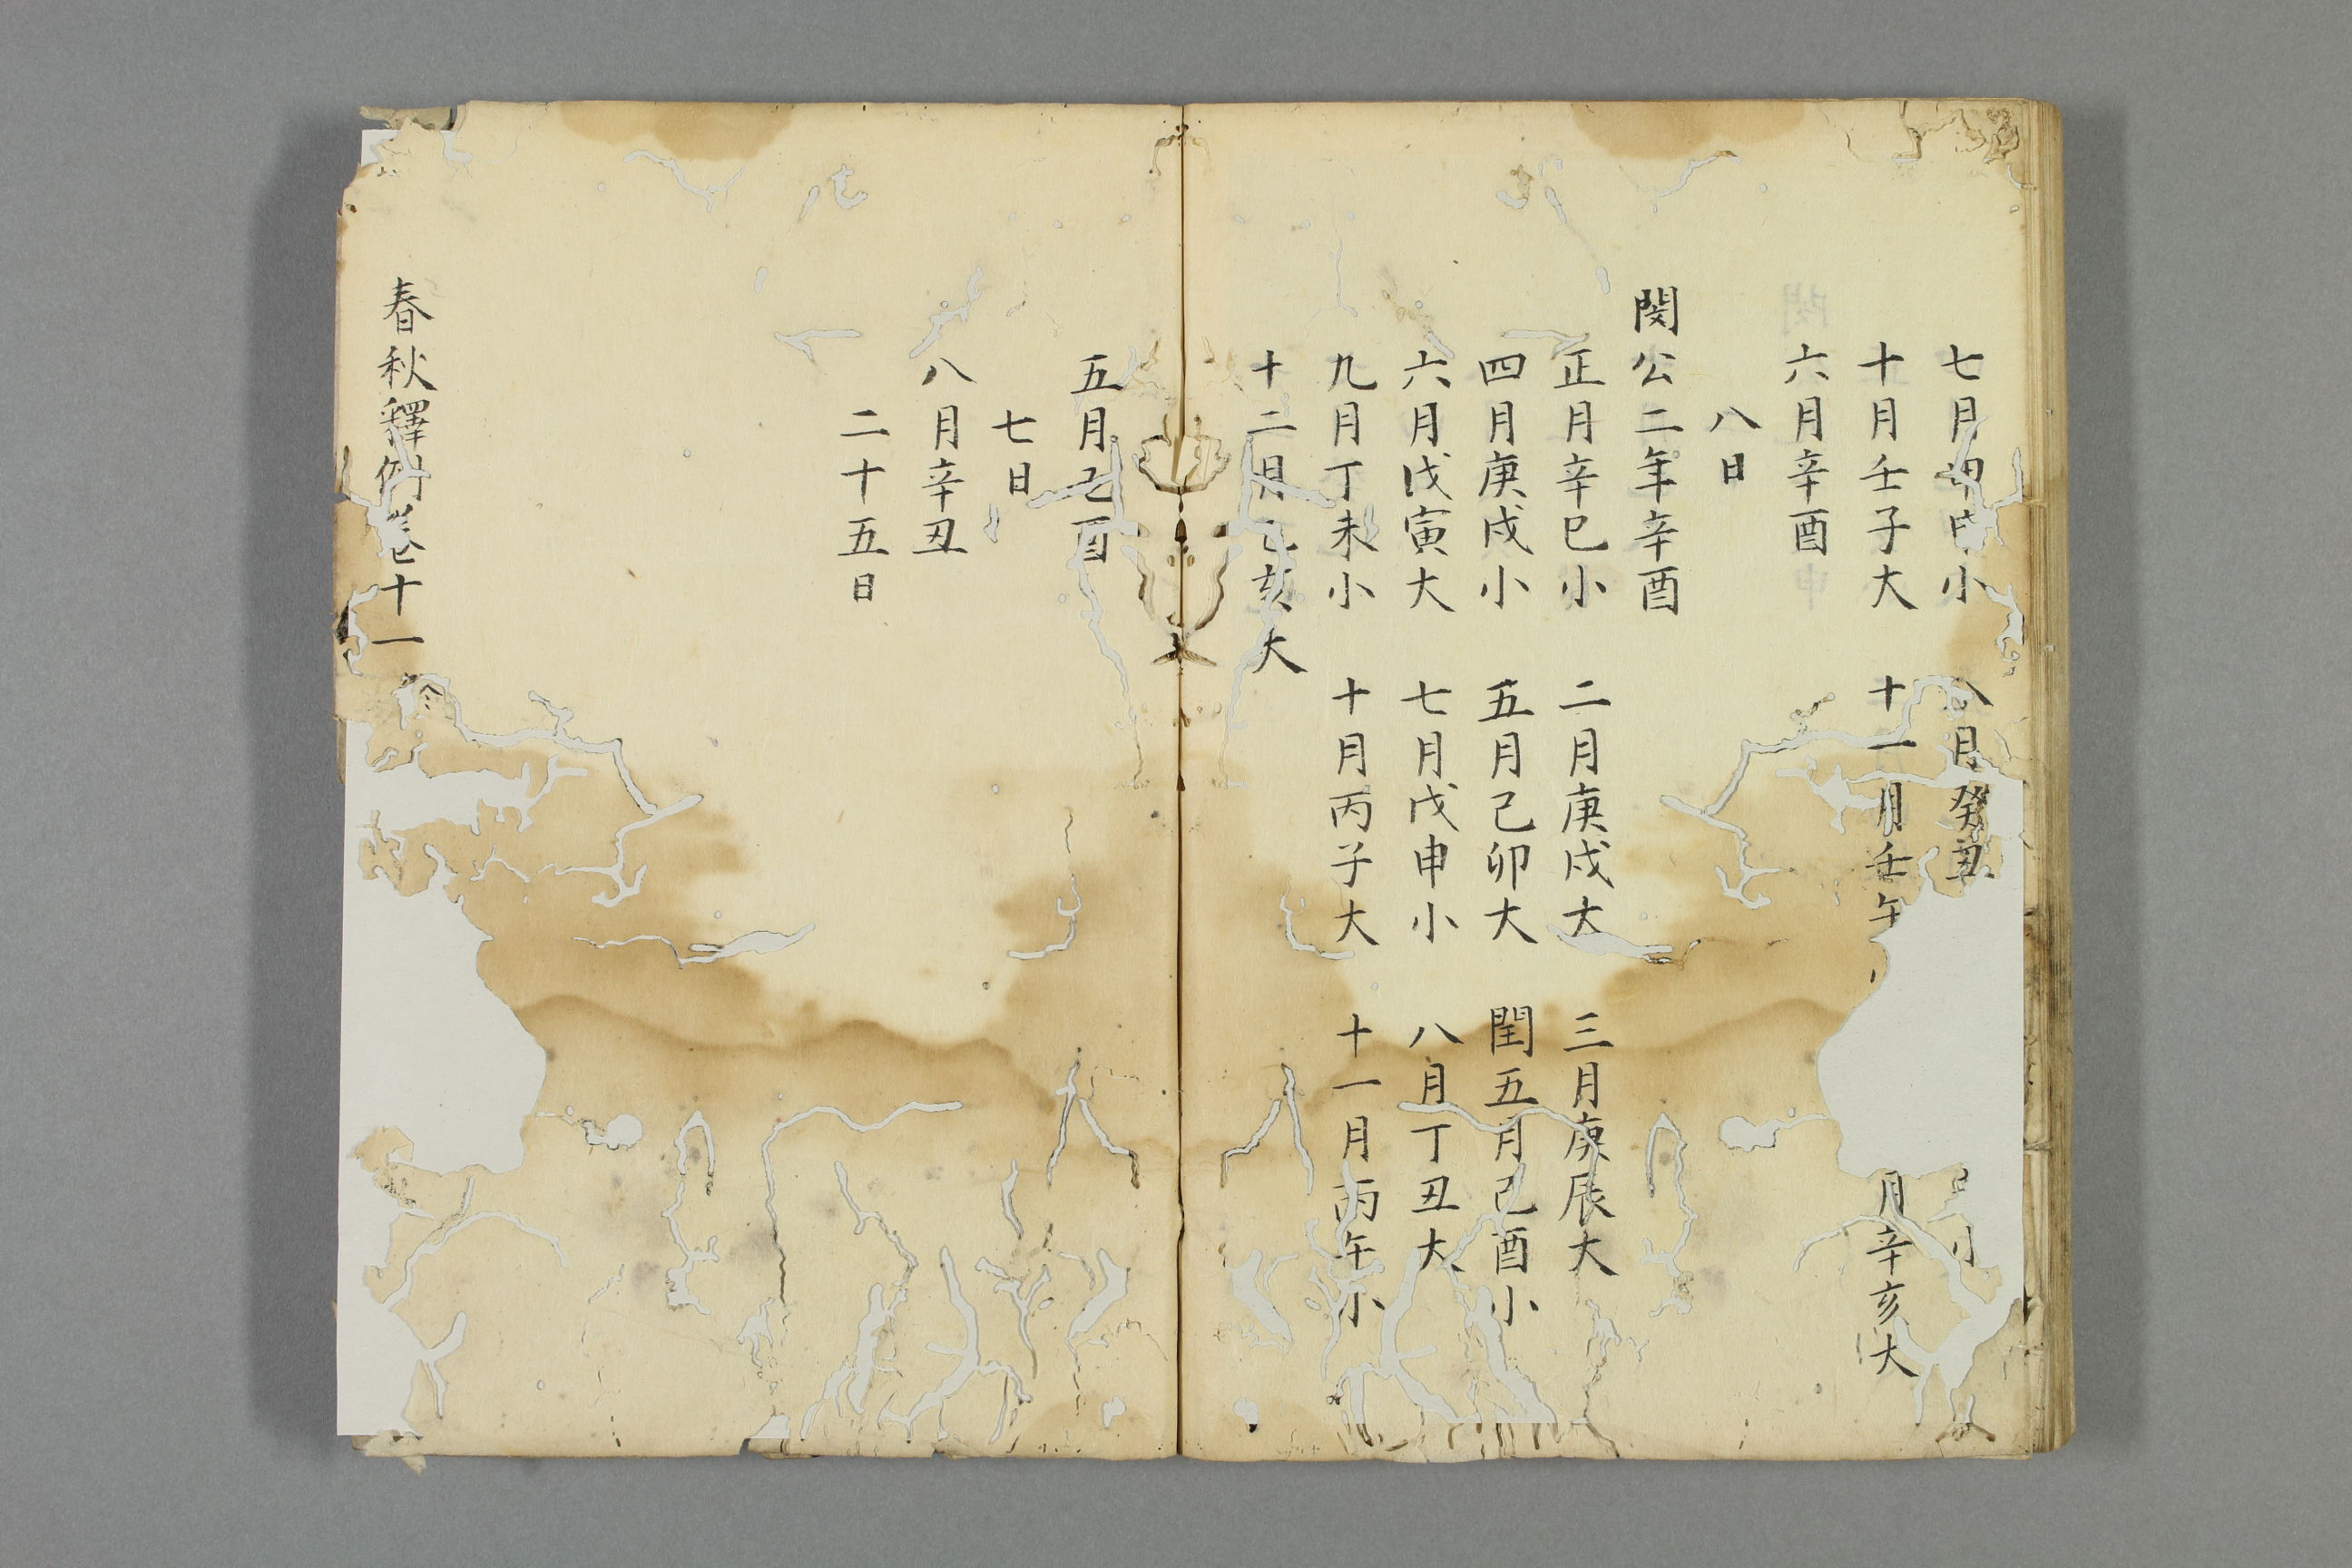 七月甲申小　八月癸丑　月小
十月壬子大　十一月壬午　月辛亥大
六月辛酉
八日
閔公二年辛酉
正月辛巳小　二月庚戌大　三月庚辰大
四月庚戌小　五月己卯大　閏五月己酉小
六月戊寅大　七月戊申小　八月丁丑大
九月丁未小　十月丙子大　十一月丙午小
十二月乙亥大
五月乙酉
七日
八月辛丑
二十五日
春秋釋例卷十一